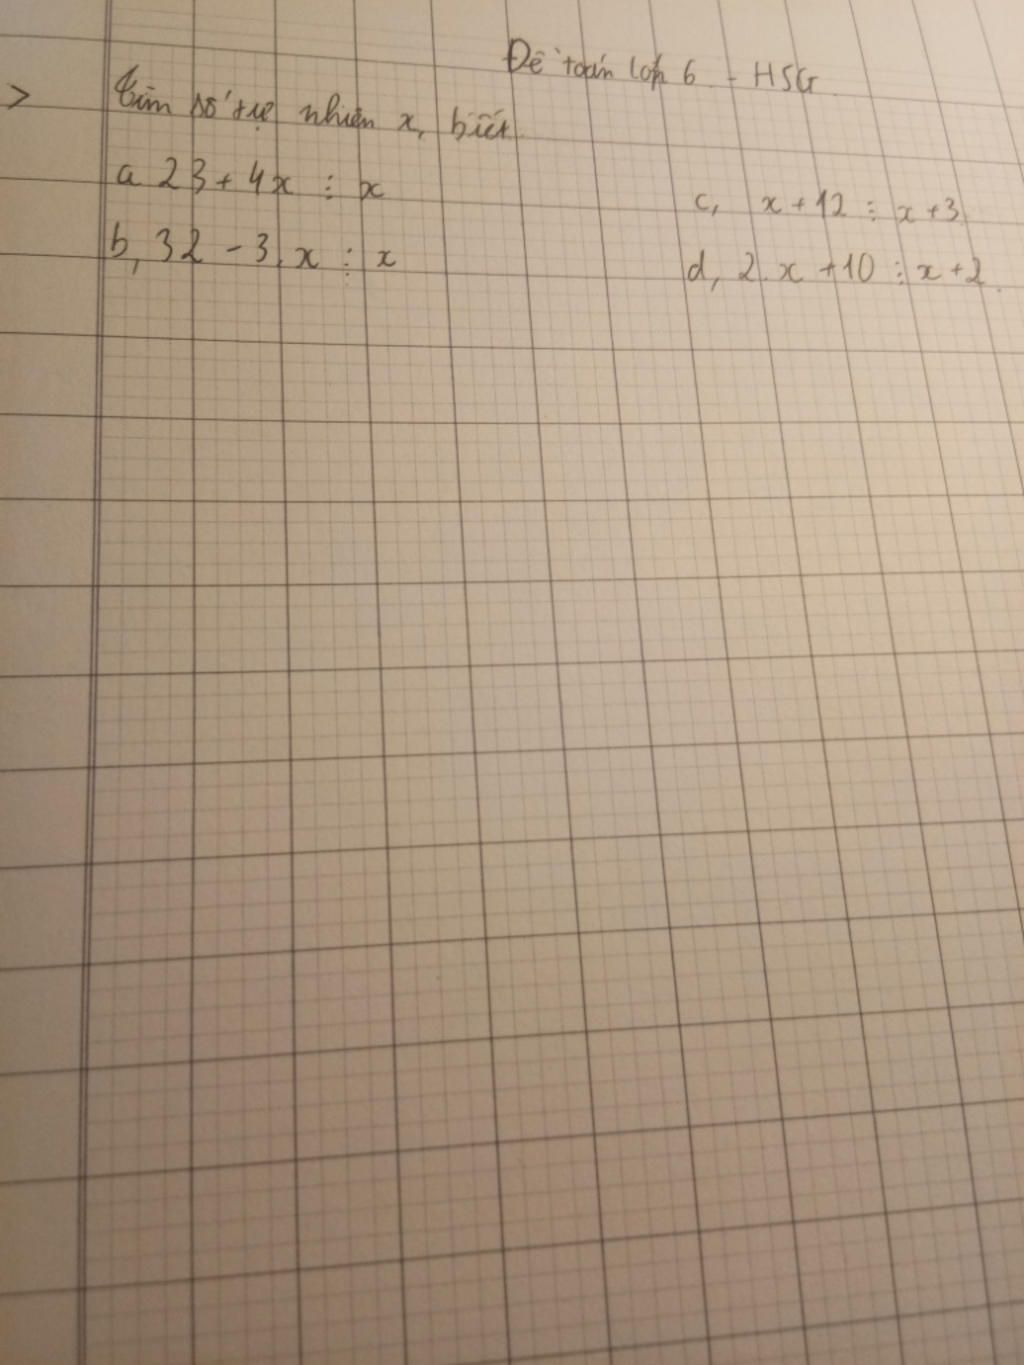 Đề toán lớp 6 - HSG
> Tìm số tự nhiên x, biết
a 23 + 4x ⋮ x
b, 32 - 3.x ⋮ x
c, x + 12 ⋮ x + 3
d, 2.x + 10 ⋮ x + 2